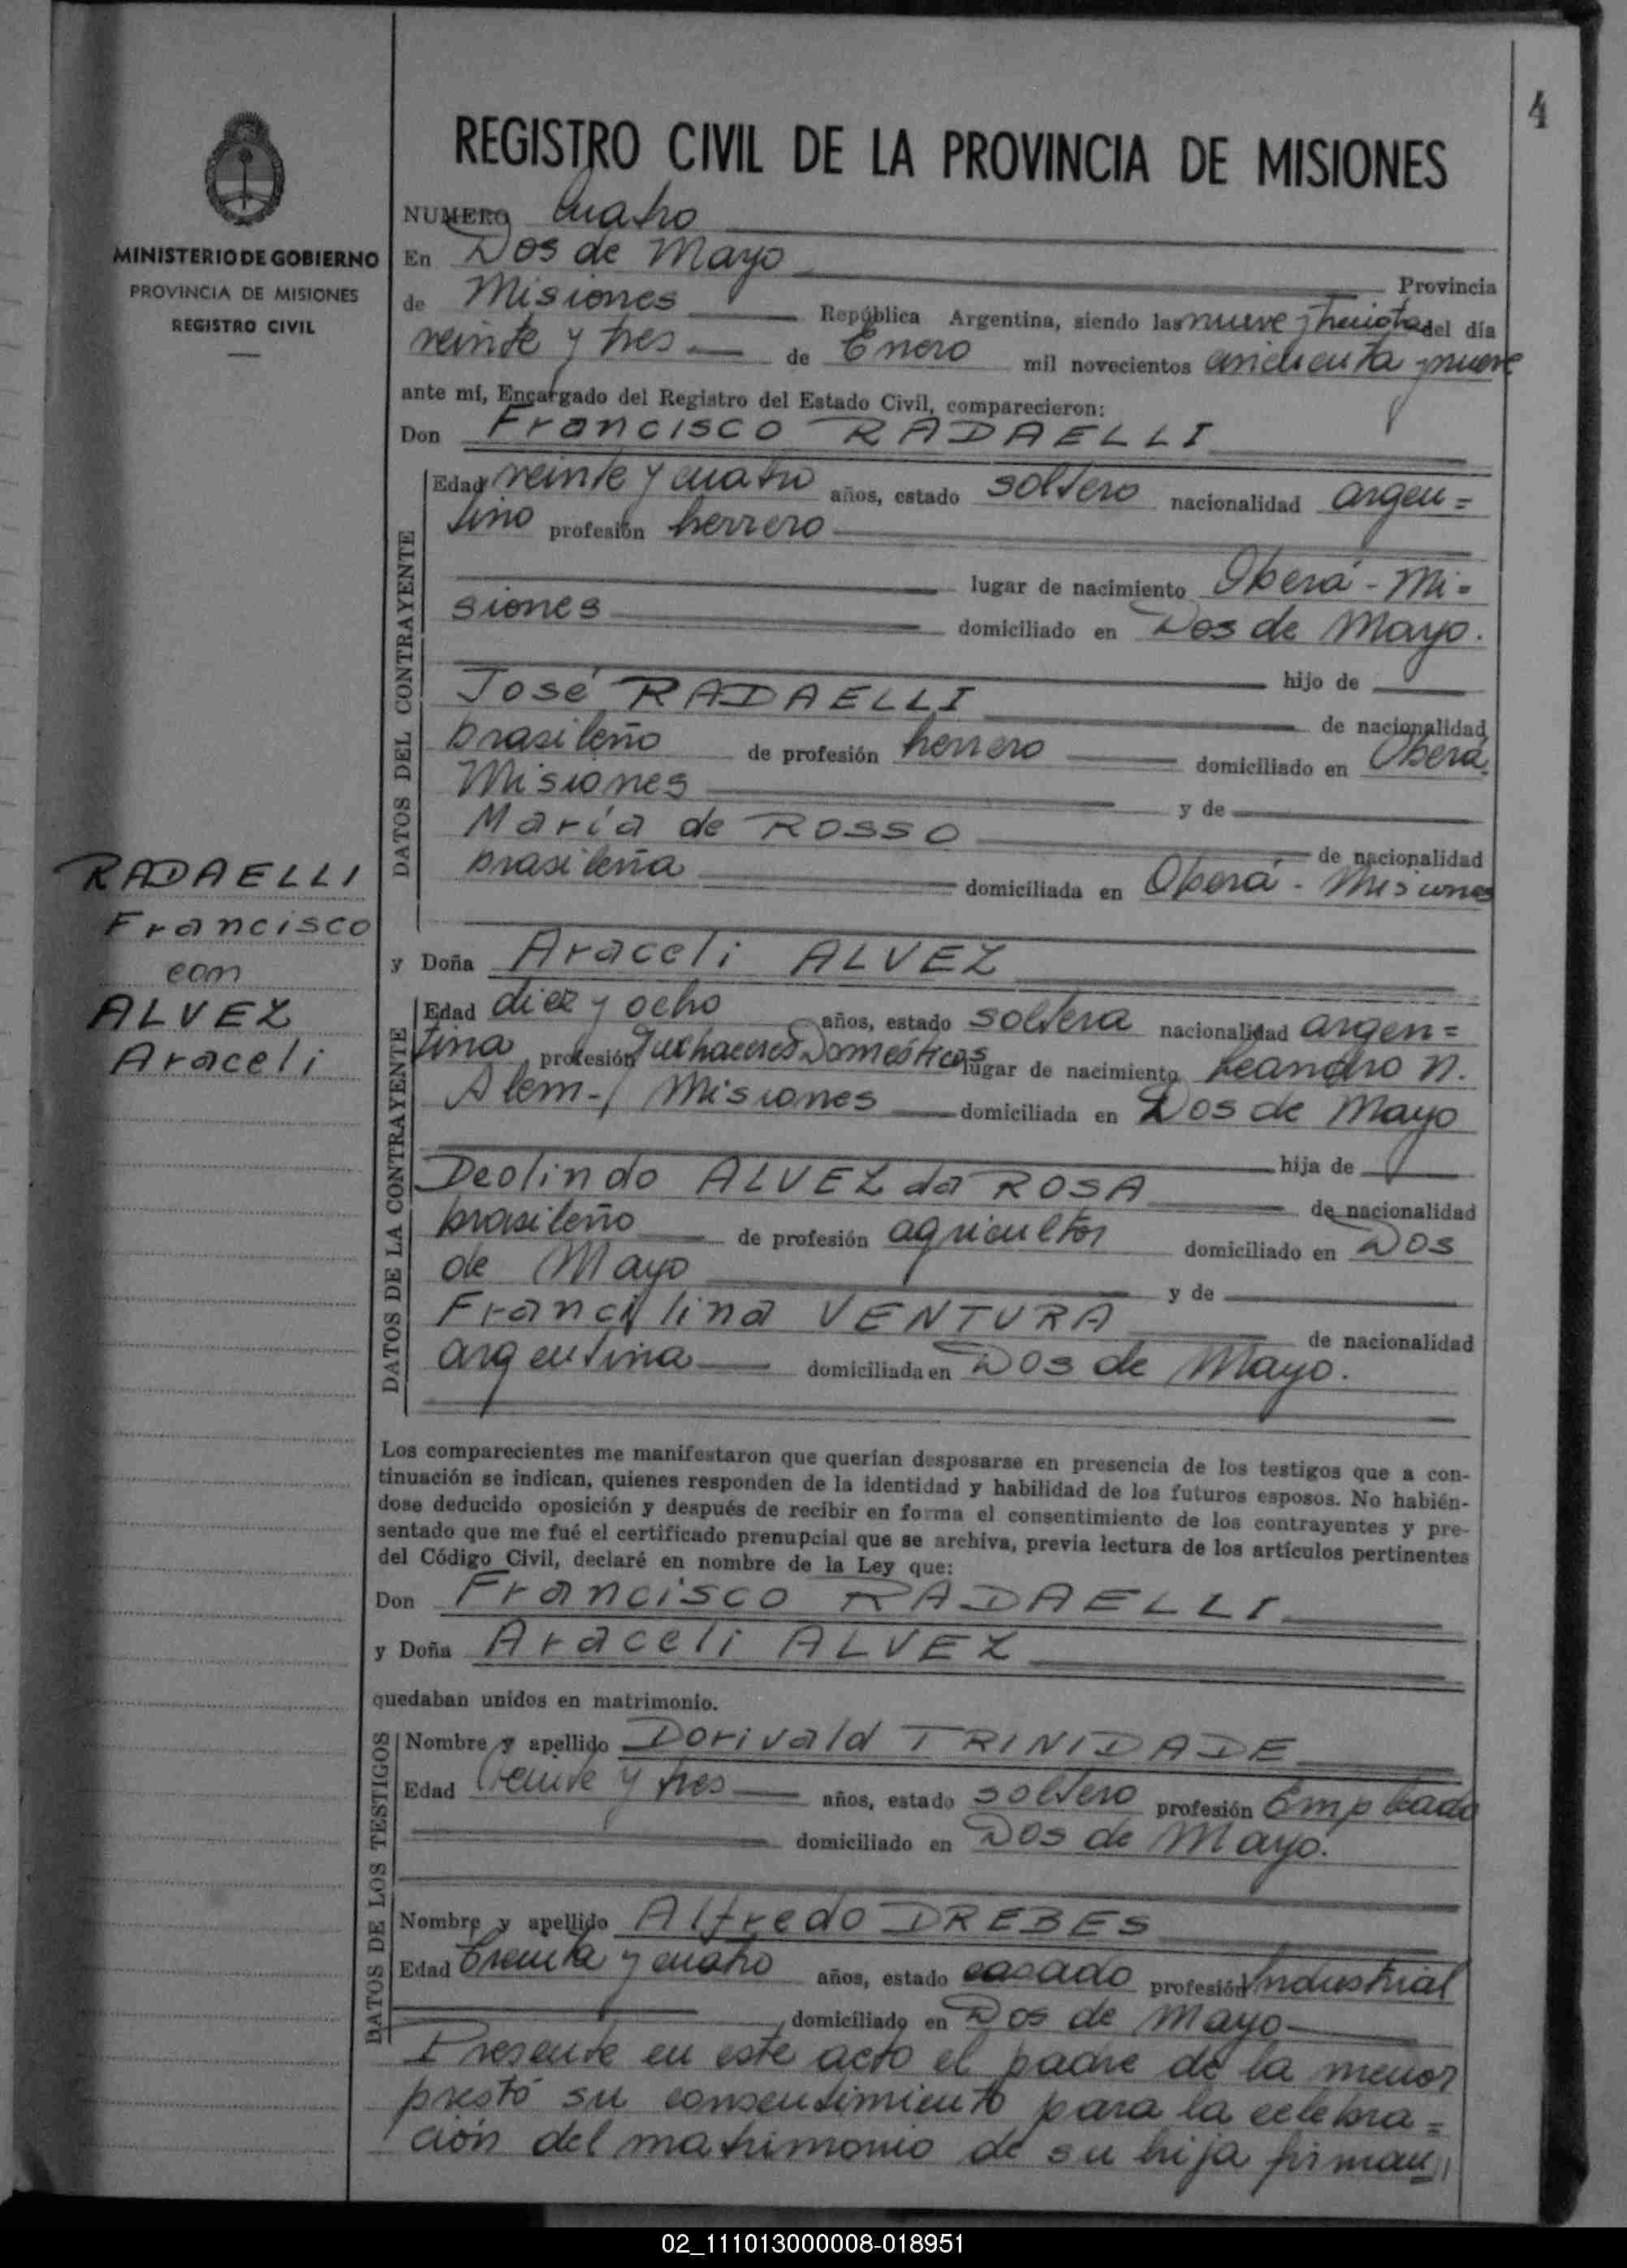 4
REGISTRO CIVIL DE LA PROVINCIA DE MISIONES
MINISTERIO DE GOBIERNO
PROVINCIA DE MISIONES
REGISTRO CIVIL
RADAELLI
Francisco
con
ALVEZ
Araceli
NUMERO Cuatro
En Dos de Mayo Provincia
de Misiones República Argentina, siendo las nueve y treinta del día
veinte y tres de Enero mil novecientos cincuenta y nueve
ante mí, Encargado del Registro del Estado Civil, comparecieron:
Don Francisco RADAELLI
DATOS DEL CONTRAYENTE
Edad veinte y cuatro años, estado soltero nacionalidad argen=
tino profesión herrero
lugar de nacimiento Oberá - Mi=
siones domiciliado en Dos de Mayo.
hijo de
José RADAELLI de nacionalidad
brasileño de profesión herrero domiciliado en Oberá
Misiones y de
María de ROSSO de nacionalidad
brasileña domiciliada en Oberá - Misiones
y Doña Araceli ALVEZ
DATOS DE LA CONTRAYENTE
Edad diez y ocho años, estado soltera nacionalidad argen=
tina profesión Quehaceres Domésticos lugar de nacimiento Leandro N.
Alem - Misiones domiciliada en Dos de Mayo
hija de
Deolindo ALVEZ da ROSA de nacionalidad
brasileño de profesión agricultor domiciliado en Dos
de Mayo y de
Francilina VENTURA de nacionalidad
argentina domiciliada en Dos de Mayo.
Los comparecientes me manifestaron que querían desposarse en presencia de los testigos que a con-
tinuación se indican, quienes responden de la identidad y habilidad de los futuros esposos. No habién-
dose deducido oposición y después de recibir en forma el consentimiento de los contrayentes y pre-
sentado que me fué el certificado prenupcial que se archiva, previa lectura de los artículos pertinentes
del Código Civil, declaré en nombre de la Ley que:
Don Francisco RADAELLI
y Doña Araceli ALVEZ
quedaban unidos en matrimonio.
DATOS DE LOS TESTIGOS
Nombre y apellido Dorivald TRINIDADE
Edad veinte y tres años, estado soltero profesión Empleado
domiciliado en Dos de Mayo.
Nombre y apellido Alfredo DREBES
Edad treinta y cuatro años, estado casado profesión Industrial
domiciliado en Dos de Mayo
Presente en este acto el padre de la menor
prestó su consentimiento para la celebra=
ción del matrimonio de su hija firman
02_111013000008-018951